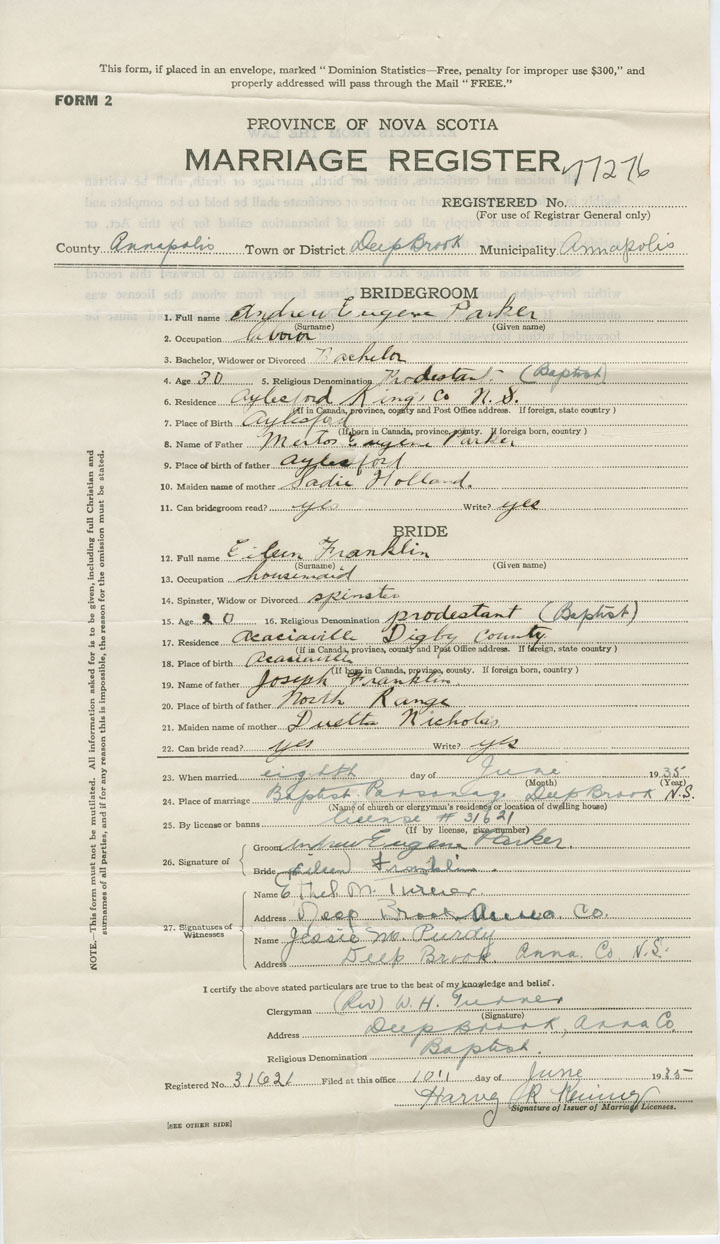 This form, if placed in an envelope, marked "Dominion Statistics—Free, penalty for improper use $300," and
properly addressed will pass through the Mail "FREE."
FORM 2
PROVINCE OF NOVA SCOTIA
MARRIAGE REGISTER
77276
REGISTERED No.
(For use of Registrar General only)
County Annapolis Town or District Deep Brook Municipality Annapolis
BRIDEGROOM
1. Full name Andrew Eugene Parker
(Surname) (Given name)
2. Occupation labour
3. Bachelor, Widower or Divorced Bachelor
4. Age 30 5. Religious Denomination Prodestant (Baptist)
6. Residence Aylesford Kings Co N.S.
(If in Canada, province, county and Post Office address. If foreign, state country)
7. Place of Birth Aylesford
(If born in Canada, province, county. If foreign born, country)
8. Name of Father Eugene Parker
9. Place of birth of father Aylesford
10. Maiden name of mother Sadie Holland.
11. Can bridegroom read? yes Write? yes
BRIDE
12. Full name Eileen Franklin
(Surname) (Given name)
13. Occupation housemaid
14. Spinster, Widow or Divorced spinster
15. Age 20 16. Religious Denomination prodestant (Baptist)
17. Residence Acaciaville Digby County
(If in Canada, province, county and Post Office address. If foreign, state country)
18. Place of birth Acaciaville
(If born in Canada, province, county. If foreign born, country)
19. Name of father Joseph Franklin
20. Place of birth of father North Range
21. Maiden name of mother Nicholas
22. Can bride read? yes Write? yes
23. When married eighth day of June 1935
(Month) (Year)
24. Place of marriage Baptist Parsonage Deep Brook N.S.
(Name of church or clergyman's residence or location of dwelling house)
25. By license or banns license # 31621
(If by license, give number)
26. Signature of
Groom Andrew Eugene Parker.
Bride Eileen Franklin.
27. Signatures of Witnesses
Name Ethel M. Turner.
Address Deep Brook Anna Co.
Name Jessie M. Purdy
Address Deep Brook. Anna. Co. N.S.
I certify the above stated particulars are true to the best of my knowledge and belief.
Clergyman (Rev) W. H. Turner
(Signature)
Address Deep Brook, Anna Co
Religious Denomination Baptist.
Registered No. 31621 Filed at this office 10 day of June 1935
Harvey R
Signature of Issuer of Marriage Licenses.
[SEE OTHER SIDE]
NOTE.—This form must not be mutilated. All information asked for is to be given, including full Christian and
surnames of all parties, and if for any reason this is impossible, the reason for the omission must be stated.